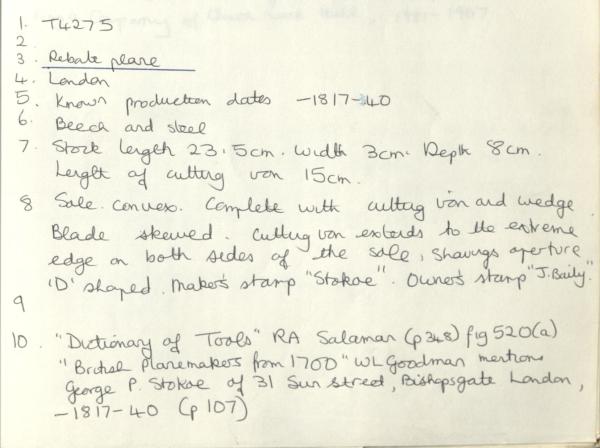 1. T4275
2
3. Rebate plane
4. London
5. Known production dates -1817-40
6. Beech and steel
7. Stock length 23.5cm. Width 3cm. Depth 8cm.
Length of cutting iron 15cm.
8 Sole convex. Complete with cutting iron and wedge.
Blade skewed. Cutting iron extends to the extreme
edge on both sides of the sole, shavings aperture
'D' shaped. Maker's stamp "Stokoe". Owner's stamp "J.Baily."
9
10. "Dictionary of Tools" RA Salaman (p348) fig 520(a)
"British Planemakers from 1700" WL Goodman mentions
George P. Stokoe of 31 Sun Street, Bishopsgate London,
-1817-40 (p107)